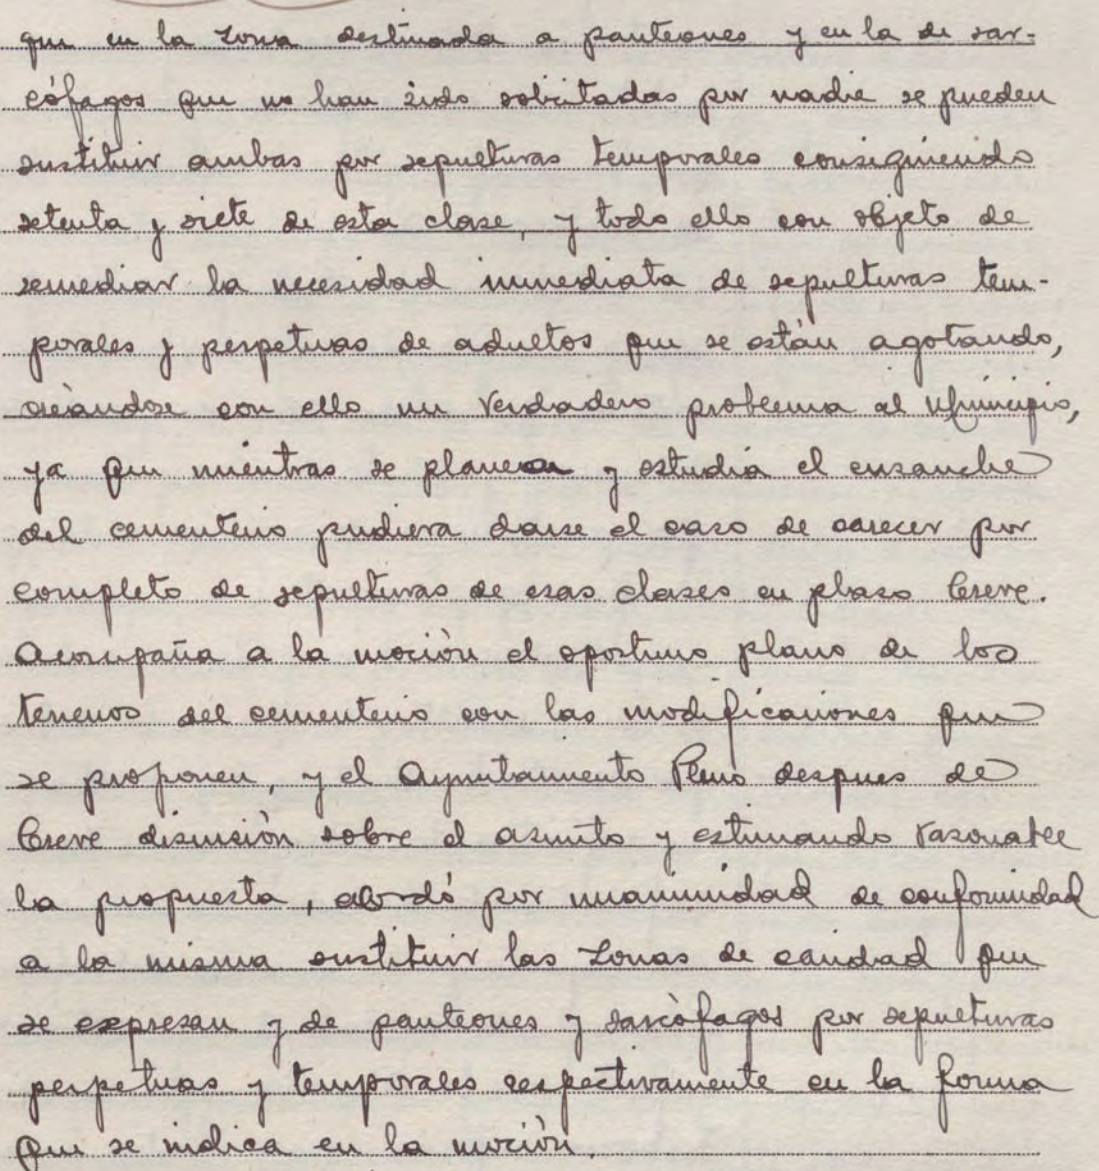 que en la zona destinada a panteones y en la de sar-
cófagos que no han sido solicitadas por nadie se pueden
sustituir ambas por sepulturas temporales consiguiendo
setenta y siete de esta clase, y todo ello con objeto de
remediar la necesidad inmediata de sepulturas tem-
porales y perpetuas de adultos que se están agotando,
creandose con ello un verdadero problema al Municipio,
ya que mientras se planean y estudia el ensanche
del cementerio pudiera darse el caso de carecer por
completo de sepulturas de esas clases en plazo breve.
Acompaña a la moción el oportuno plano de los
terrenos del cementerio con las modificaciones que
se proponen, y el Ayuntamiento Pleno despues de
breve discusión sobre el asunto y estimando razonable
la propuesta, acordó por unanimidad de conformidad
a la misma sustituir las zonas de caridad que
se expresan y de panteones y sarcòfagos por sepulturas
perpetuas y temporales respectivamente en la forma
que se indica en la moción.